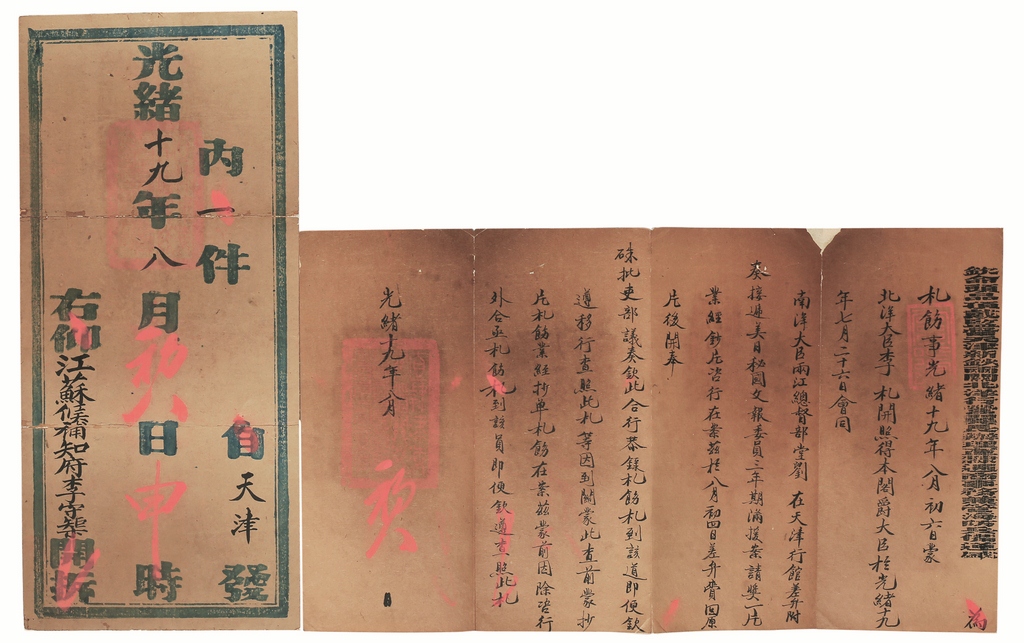 內一件
自天津發
光緒十九年八月初八日申時
右仰江蘇候補知府李守開拆
為
札飭事光緒十九年八月初六日蒙
北洋大臣李 札開照得本閣爵大臣於光緒十九
年七月二十六日會同
南洋大臣兩江總督部堂劉 在天津行館差弁附
奏接遞美日秘國文報委員三年期滿援案請獎一片
業經鈔片咨行在案茲於八月初四日差弁賫回原
片後開奉
硃批吏部議奏欽此合行恭錄札飭札到該道即便欽
遵移行查照此札等因到關蒙此查前蒙抄
片札飭業經抄单札飭在案茲蒙前因除咨行
外合亟札飭札到該員即便欽遵查照此札
光緒十九年八月